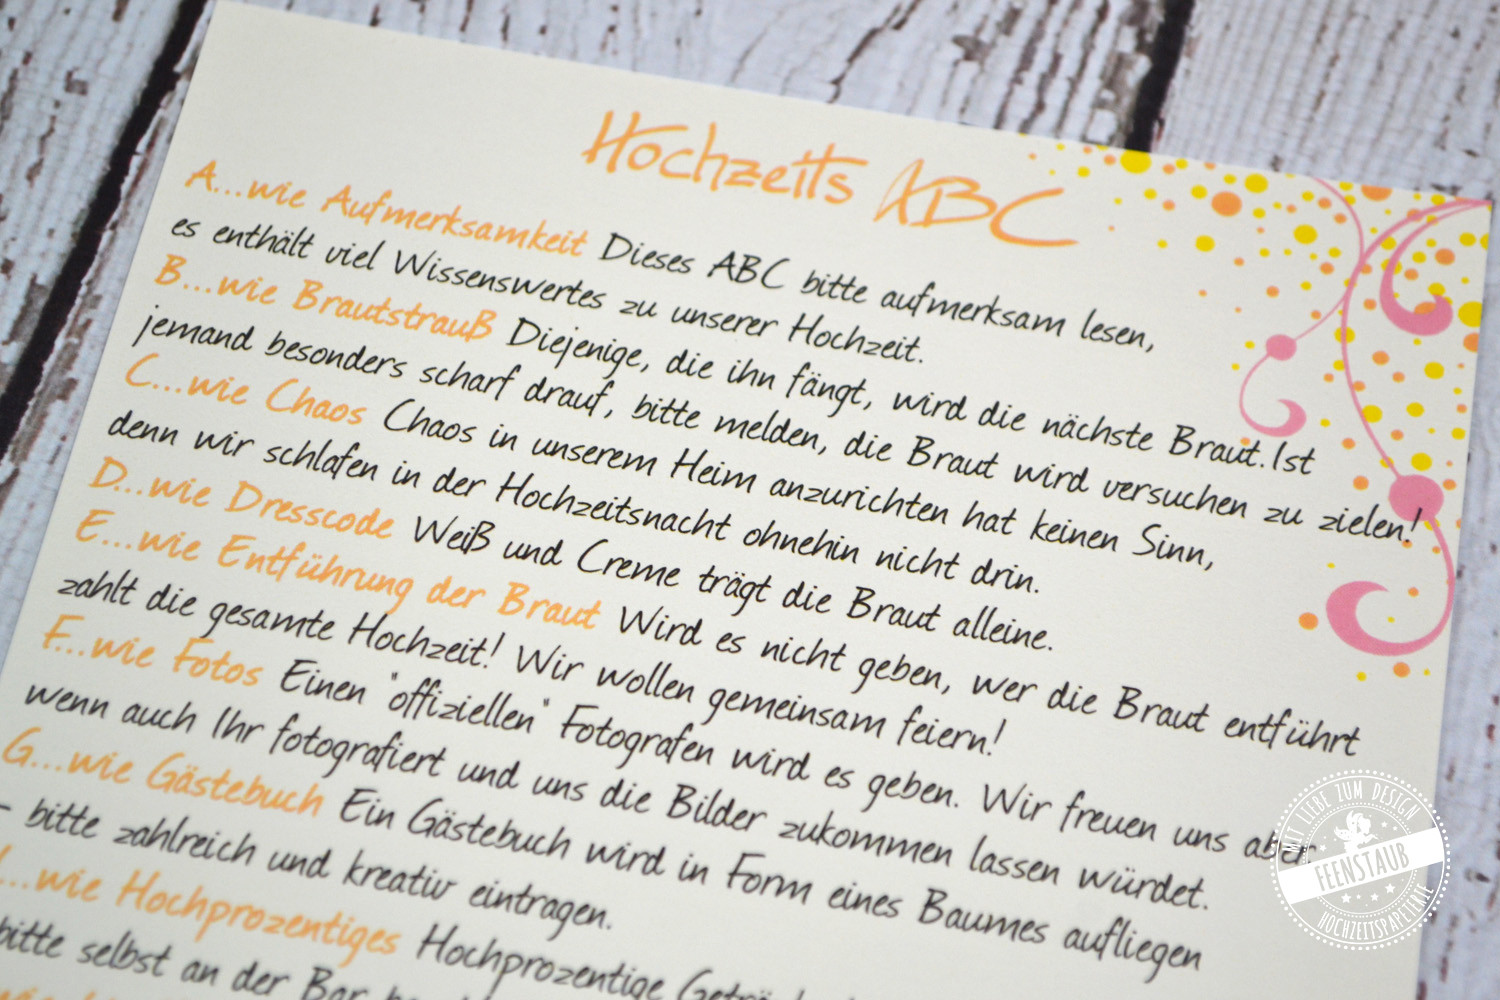 Hochzeits ABC
A...wie Aufmerksamkeit Dieses ABC bitte aufmerksam lesen,
es enthält viel Wissenswertes zu unserer Hochzeit.
B...wie Brautstrauß Diejenige, die ihn fängt, wird die nächste Braut.Ist
jemand besonders scharf drauf, bitte melden, die Braut wird versuchen zu zielen!
C...wie Chaos Chaos in unserem Heim anzurichten hat keinen Sinn,
denn wir schlafen in der Hochzeitsnacht ohnehin nicht drin.
D...wie Dresscode Weiß und Creme trägt die Braut alleine.
E...wie Entführung der Braut Wird es nicht geben, wer die Braut entführt
zahlt die gesamte Hochzeit! Wir wollen gemeinsam feiern!
F...wie Fotos Einen "offiziellen" Fotografen wird es geben. Wir freuen uns aber
wenn auch Ihr fotografiert und uns die Bilder zukommen lassen würdet.
G...wie Gästebuch Ein Gästebuch wird in Form eines Baumes aufliegen
- bitte zahlreich und kreativ eintragen.
...wie Hochprozentiges Hochprozentige
bitte selbst an der Bar
MIT LIEBE ZUM DESIGN
FEENSTAUB
HOCHZEITSPAPETERIE